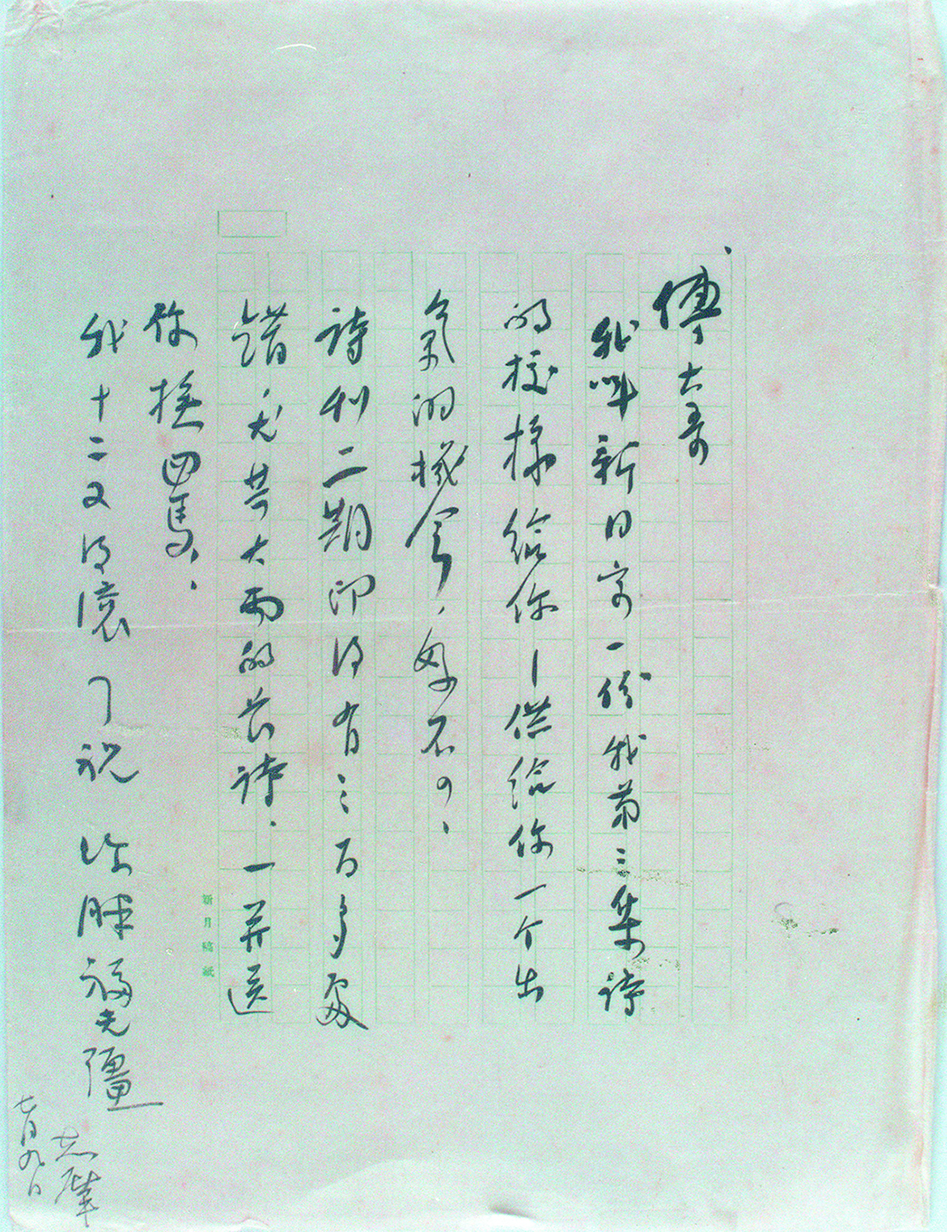 傅大哥、
我叫新月寄一份我第三集詩
的校樣給你—供給你一个出
氣的機會,
詩刊二期印得有三百多處
錯,尤其大雨的長詩.一并送
你
我十二又得滾了祝 你胖福无疆
志摩
七月九日
新月稿紙